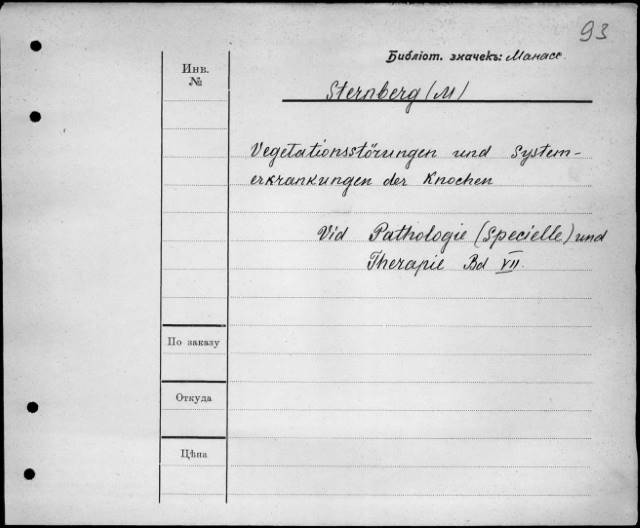 93
Библіот. значекъ: Манасс.
Инв.
№
Sternberg (M)
Vegetationsstörungen und System-
erkrankungen der Knochen
Vid Pathologie (Specielle) und
Therapie Bd VII.
По заказу
Откуда
Цѣна